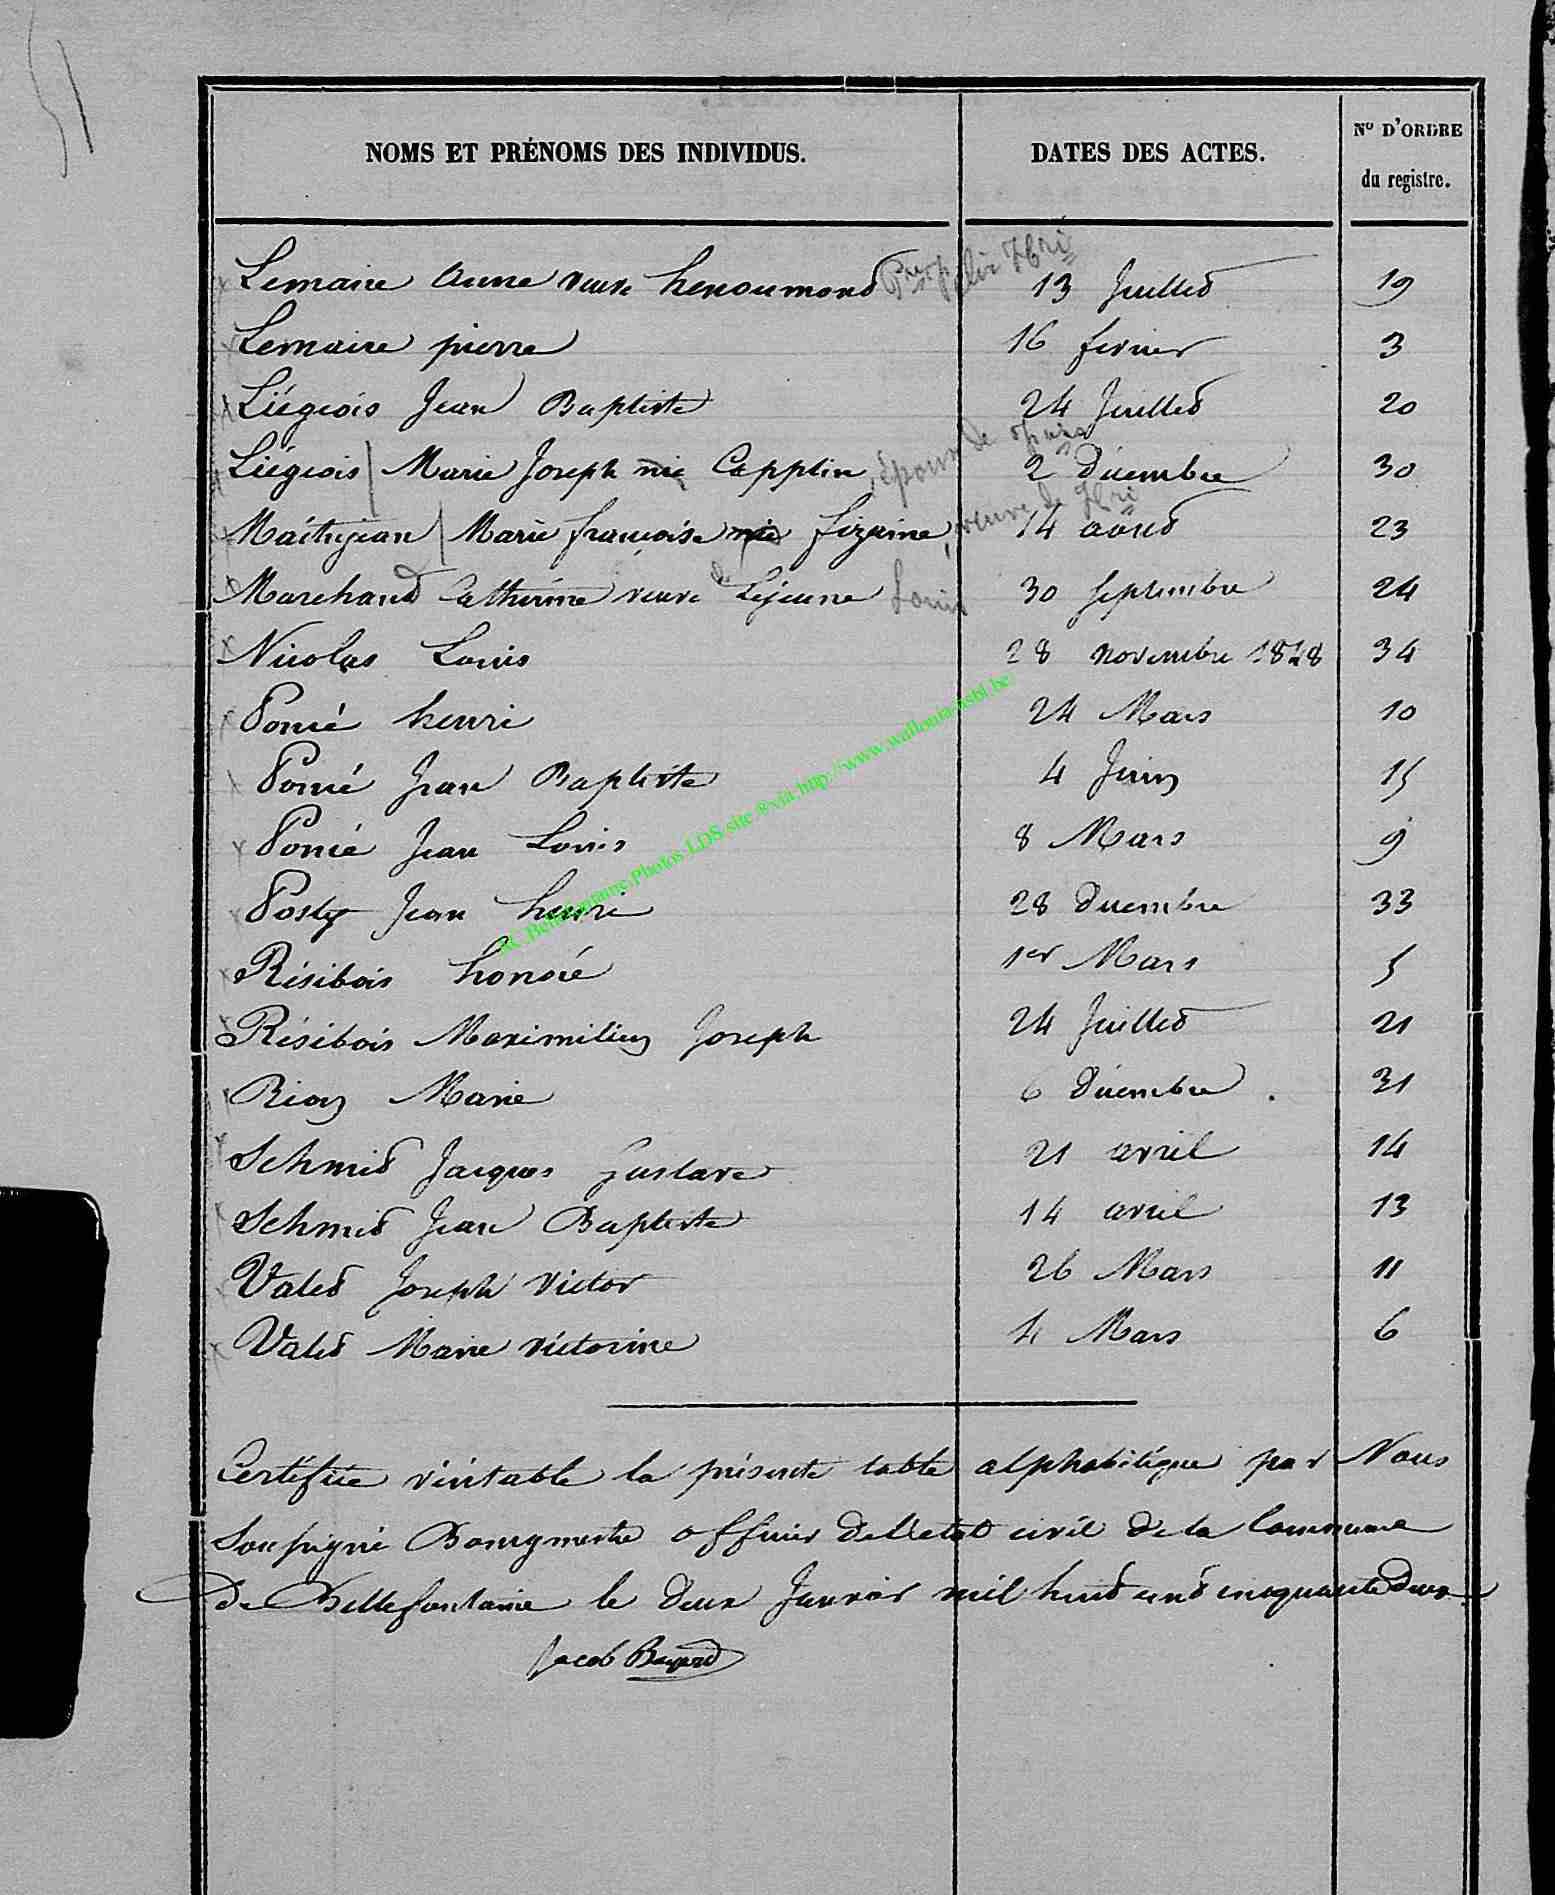 51
NOMS ET PRÉNOMS DES INDIVIDUS. DATES DES ACTES. N° D'ORDRE du registre.
Lemaire Anne veuve henoumond 13 Juillet 19
Lemaire pierre 16 fevrier 3
Liégeois Jean Baptiste 24 Juillet 20
Liégeois Marie Joseph née Capplin, épouse de 2 Décembre 30
Maithyean Marie françoise née fizaine, veuve de Hri 14 août 23
Marchand Catherine veuve de Lejeune Louis 30 Septembre 24
Nicolas Louis 28 novembre 1828 34
Poncé henri 24 Mars 10
Poncé Jean Baptiste 4 Juin 15
Poncé Jean Louis 8 Mars 9
Posty Jean henri 28 Décembre 33
Résibois honoré 1er Mars 5
Résibois Maximilien Joseph 24 Juillet 21
Rion Marie 6 Décembre . 31
Schmid Jacques Gustave 21 avril 14
Schmid Jean Baptiste 14 avril 13
Valet Joseph Victor 26 Mars 11
Valet Marie victorine 4 Mars 6
AC.Bellefontaine.Photos LDS site ®via http://www.wallonia-asbl.be/
Certifiée véritable la présente table alphabétique par Nous
Soussigné Bourgmestre officier de l'etat civil de la Commune
De Bellefontaine le deux Janvier mil huit cent cinquante deux
Jacob Bayard